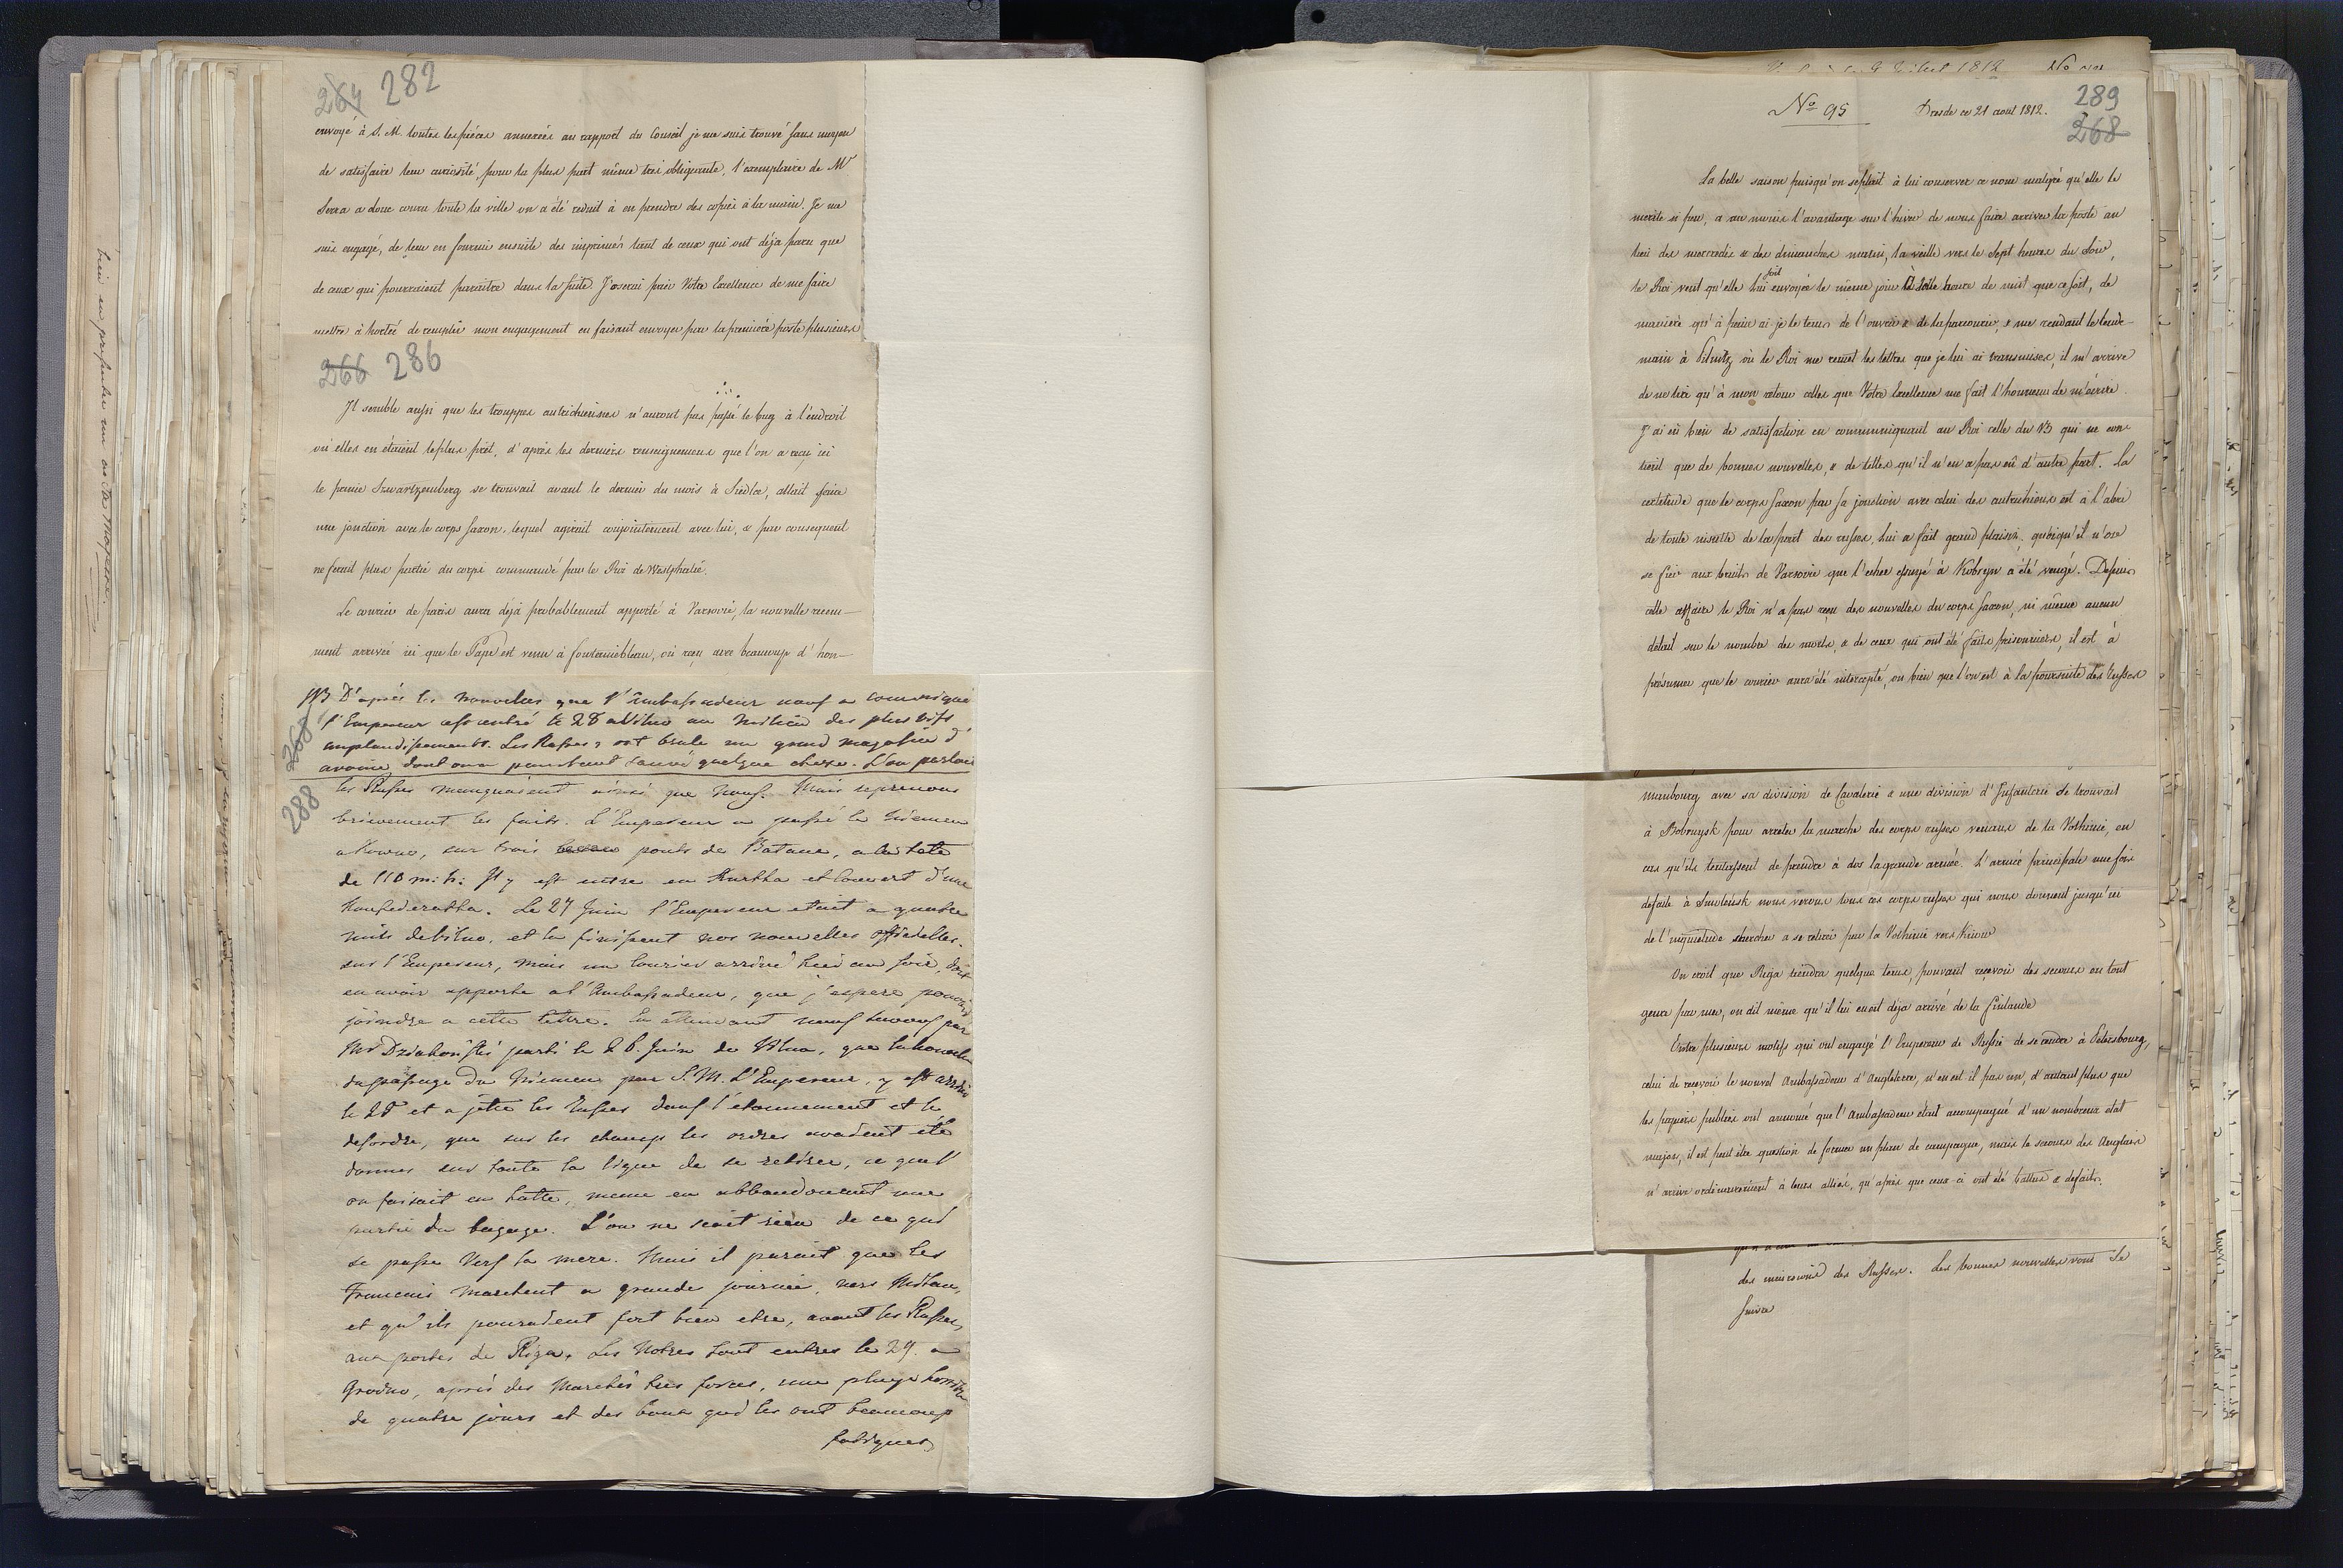 264 282
envoyé à S. M. toutes les piéces annexées au rapport du Conseil je me suis trouvé sans moyen
de satisfaire leur curiosité, pour la plus part même tres obligeante, l'exemplaire de Mr
Serra a donc couru toute la ville on a été reduit à en prendre des copies à la main. Je me
suis engagé, de leur en fournir ensuite des imprimés tant de ceux qui ont déja paru que
de ceux qui pourraient paraitre dans la suite. J'oserai prier Votre Excellence de me faire
mettre à portée de remplir mon engagement en faisant envoyer par la premiére poste plusieurs
266 286
Il semble aussi que les trouppes autrichiennes n'auront pas passé le bug à l'endroit
où elles en étaient le plus prêt, d'après les derniers renseignemens que l'on a reçu ici
le prince Szwartzemberg se trouvait avant le dernier du mois à Siedlce, allait faire
une jonction avec le corps saxon, lequel agirait conjointement avec lui, & par consequent
ne ferait plus partie du corps commandé par le Roi de Westphalie.
Le courier de paris aura déjà probablement apporté à Varsovie, la nouvelle recem-
ment arrivée ici que le Pape est venu à fontainebleau, où reçu avec beaucoup d'hon-
NB D'après les nouvelles que l'Ambassadeur nous a comuniqué
l'Empereur est entré le 28 a Vilno au milieu des plus vifs
applaudissements. Les Russes ont brulé un grand magasin d'
avoine dont on a pourtant sauvé quelque chose. L'on
268
288
les Russes manquaient ainsi que nous. Mais reprenons
brievement les faits. L'Empereur a passé le Niemen
a Kowno, sur trois ponts de Bateau, a la tete
de 110 m: h: Il y est entré en Kurtka et couvert d'une
Konfederatka. Le 27 Juin l'Empereur etait a quatre
mils de Vilno, et la finissent nos nouvelles officielles.
sur l'Empereur, mais un Courier arrivé hier au soir, doit
en avoir apporté a l'Ambassadeur, que j'espere pouvoir
joindre a cette lettre. En attendant nous savons par
Mr parti le 26. Juin de Vilno, que la nouvelle
du passage du Niemen par S. M. L'Empereur, y est arrivée
le 25 et a jetté les Russes dans l'etonnement et le
desordre, que sur les champs les ordres avaient été
donnés sur toute la ligne de se retirer, ce que l'
on faisait en hatte, meme en abbandonnant une
partie du bagage. L'on ne scait rien de ce qui
se passe vers la mere. Mais il parait que les
Francais marchent a grande journée, vers Mitau,
et qu'ils pouraient fort bien etre, avant les Russes,
aux portes de Riga. Les Notres sont entres le 29. a
Grodno, après des Marches tres forces, une pluye horrible
de quatre jours et des boues qui les ont beaucoup
fatigués
bien en presenter un au Cte Mostowski.
No 95 Dresde ce 21 aout 1812. 289
268
La belle saison puisqu'on se plait à lui conserver ce nom malgré qu'elle le
merite si peu, a au moins l'avantage sur l'hiver de nous faire arriver la poste au
lieu des mercredis & des dimanches matin, la veille vers les sept heures du soir,
le Roi veut qu'elle lui soit envoyée le même jour à telle heure de nuit que ce soit, de
manière qu'à peine ai-je le tems de l'ouvrir & de la parcourir, & me rendant le lende-
main à Pilnitz où le Roi me remet les lettres que je lui ai transmises, il m'arrive
de ne lire qu'à mon retour celles que Votre Excellence me fait l'honneur de m'écrire.
J'ai eû bien de satisfaction en communiquant au Roi celle du 13 qui ne con-
tient que de bonnes nouvelles, & de telles qu'il n'en a pas eû d'autre part. La
certitude que le corps Saxon par sa jonction avec celui des autrichiens est à l'abri
de toute insulte de la part des russes, lui a fait grand plaisir, quoiqu'il n'ose
se fier aux bruits de Varsovie que l'echec essuyé à Kobryn a été vengé. Depuis
cette affaire le Roi n'a pas reçu des nouvelles du corps Saxon, ni même aucun
détail sur le nombre des morts, & de ceux qui ont été faits prisonniers, il est à
présumer que le courier aura été intercepté, ou bien que l'on est à la poursuite des Russes
Maubourg avec sa division de Cavalerie & une division d'Infanterie se trouvait
à Bobruysk pour arreter la marche des corps russes venans de la Volhinie, en
cas qu'ils tentassent de prendre à dos la grande armée. L'armée principale une fois
defaite à Smoleńsk nous verons tous ces corps russes qui nous donnent jusqu'ici
de l'inquietude chercher a se retirer par la Volhinie vers Kiow
On croit que Riga tiendra quelque tems, pouvant reçevoir des secours en tout
genre par mer, on dit même qu'il lui en est déja arrivé de la Finlande
Entre plusieurs motifs qui ont engagé l'Empereur de Russie de se rendre à Petersbourg,
celui de reçevoir le nouvel Ambassadeur d'Angleterre, n'en est il pas un, d'autant plus que
les papiers publics ont annoncé que l'Ambassadeur était accompagné d'un nombreux état
major, il est peut être question de former un plan de campagne, mais le secours des Anglais
n'arrive ordinairement à leurs alliés, qu'après que ceux-ci ont été battus & defaits.
des incursions des Russes. Les bonnes nouvelles vont se
suivre